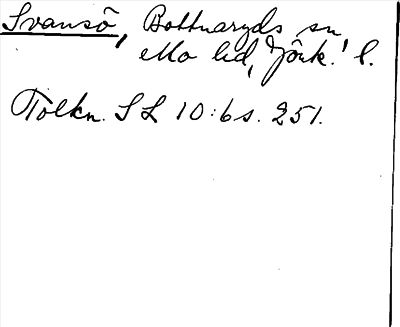 Svansö, Bottnaryds sn,
Mo hd, Jönk. l.
Tolkn. SL 10:6 s. 251.